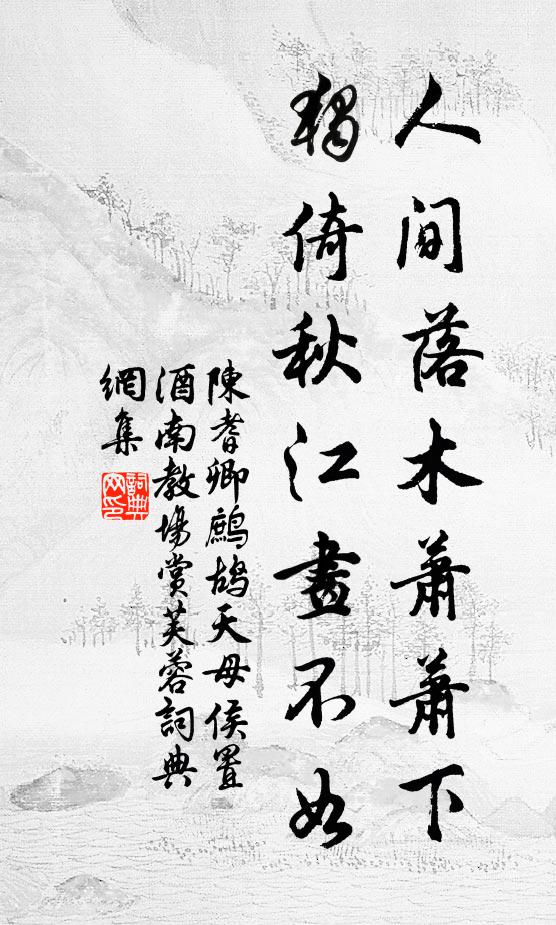 人间落木蕭蕭下
獨倚秋江畫不如
陳耆卿鷓鴣天毋侯置
酒南教場賞芙蓉詞典
網集
詞典
网印